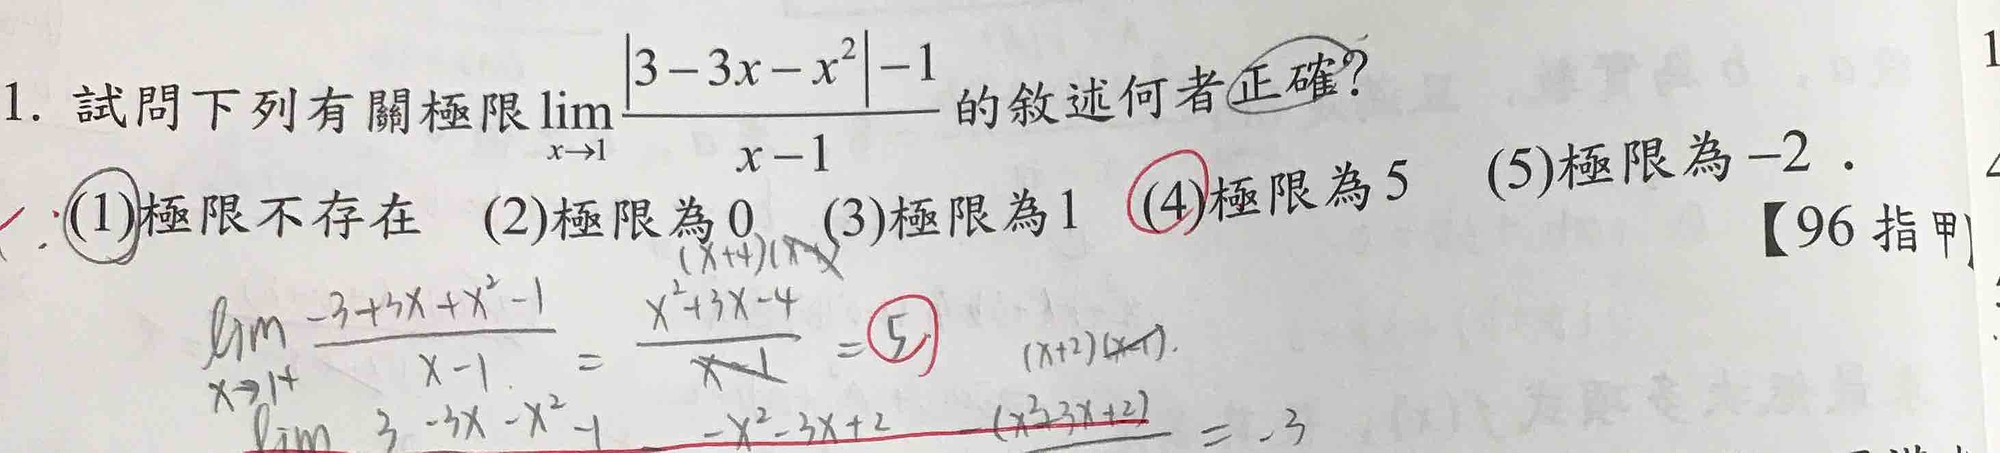 1. 試問下列有關極限 lim x→1 (|3-3x-x²|-1)/(x-1) 的敘述何者正確?
(1)極限不存在 (2)極限為0 (3)極限為1 (4)極限為5 (5)極限為-2．
【96指甲】
(x+4)(x-1)
lim x→1+ (-3+3x+x²-1)/(x-1) = (x²+3x-4)/(x-1) = 5
(x+2)(x-1).
lim 3-3x-x²-1 -x²-3x+2 -(x²+3x+2) = -3